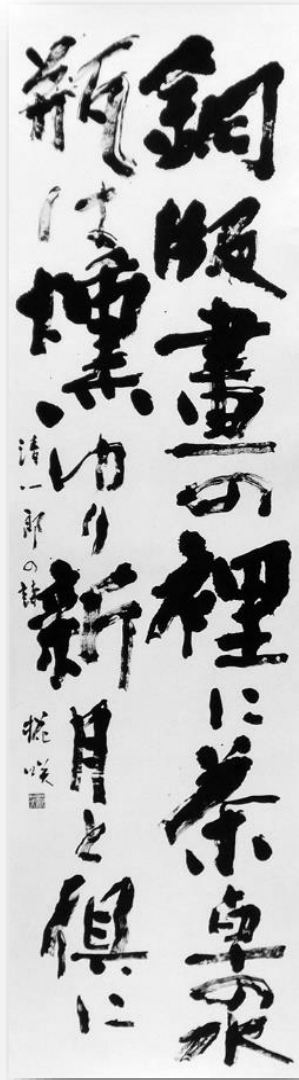 銅版畫の裡に茶卓の水
瓶は燻ゆり新月と倶に
清一郎の詩 咲